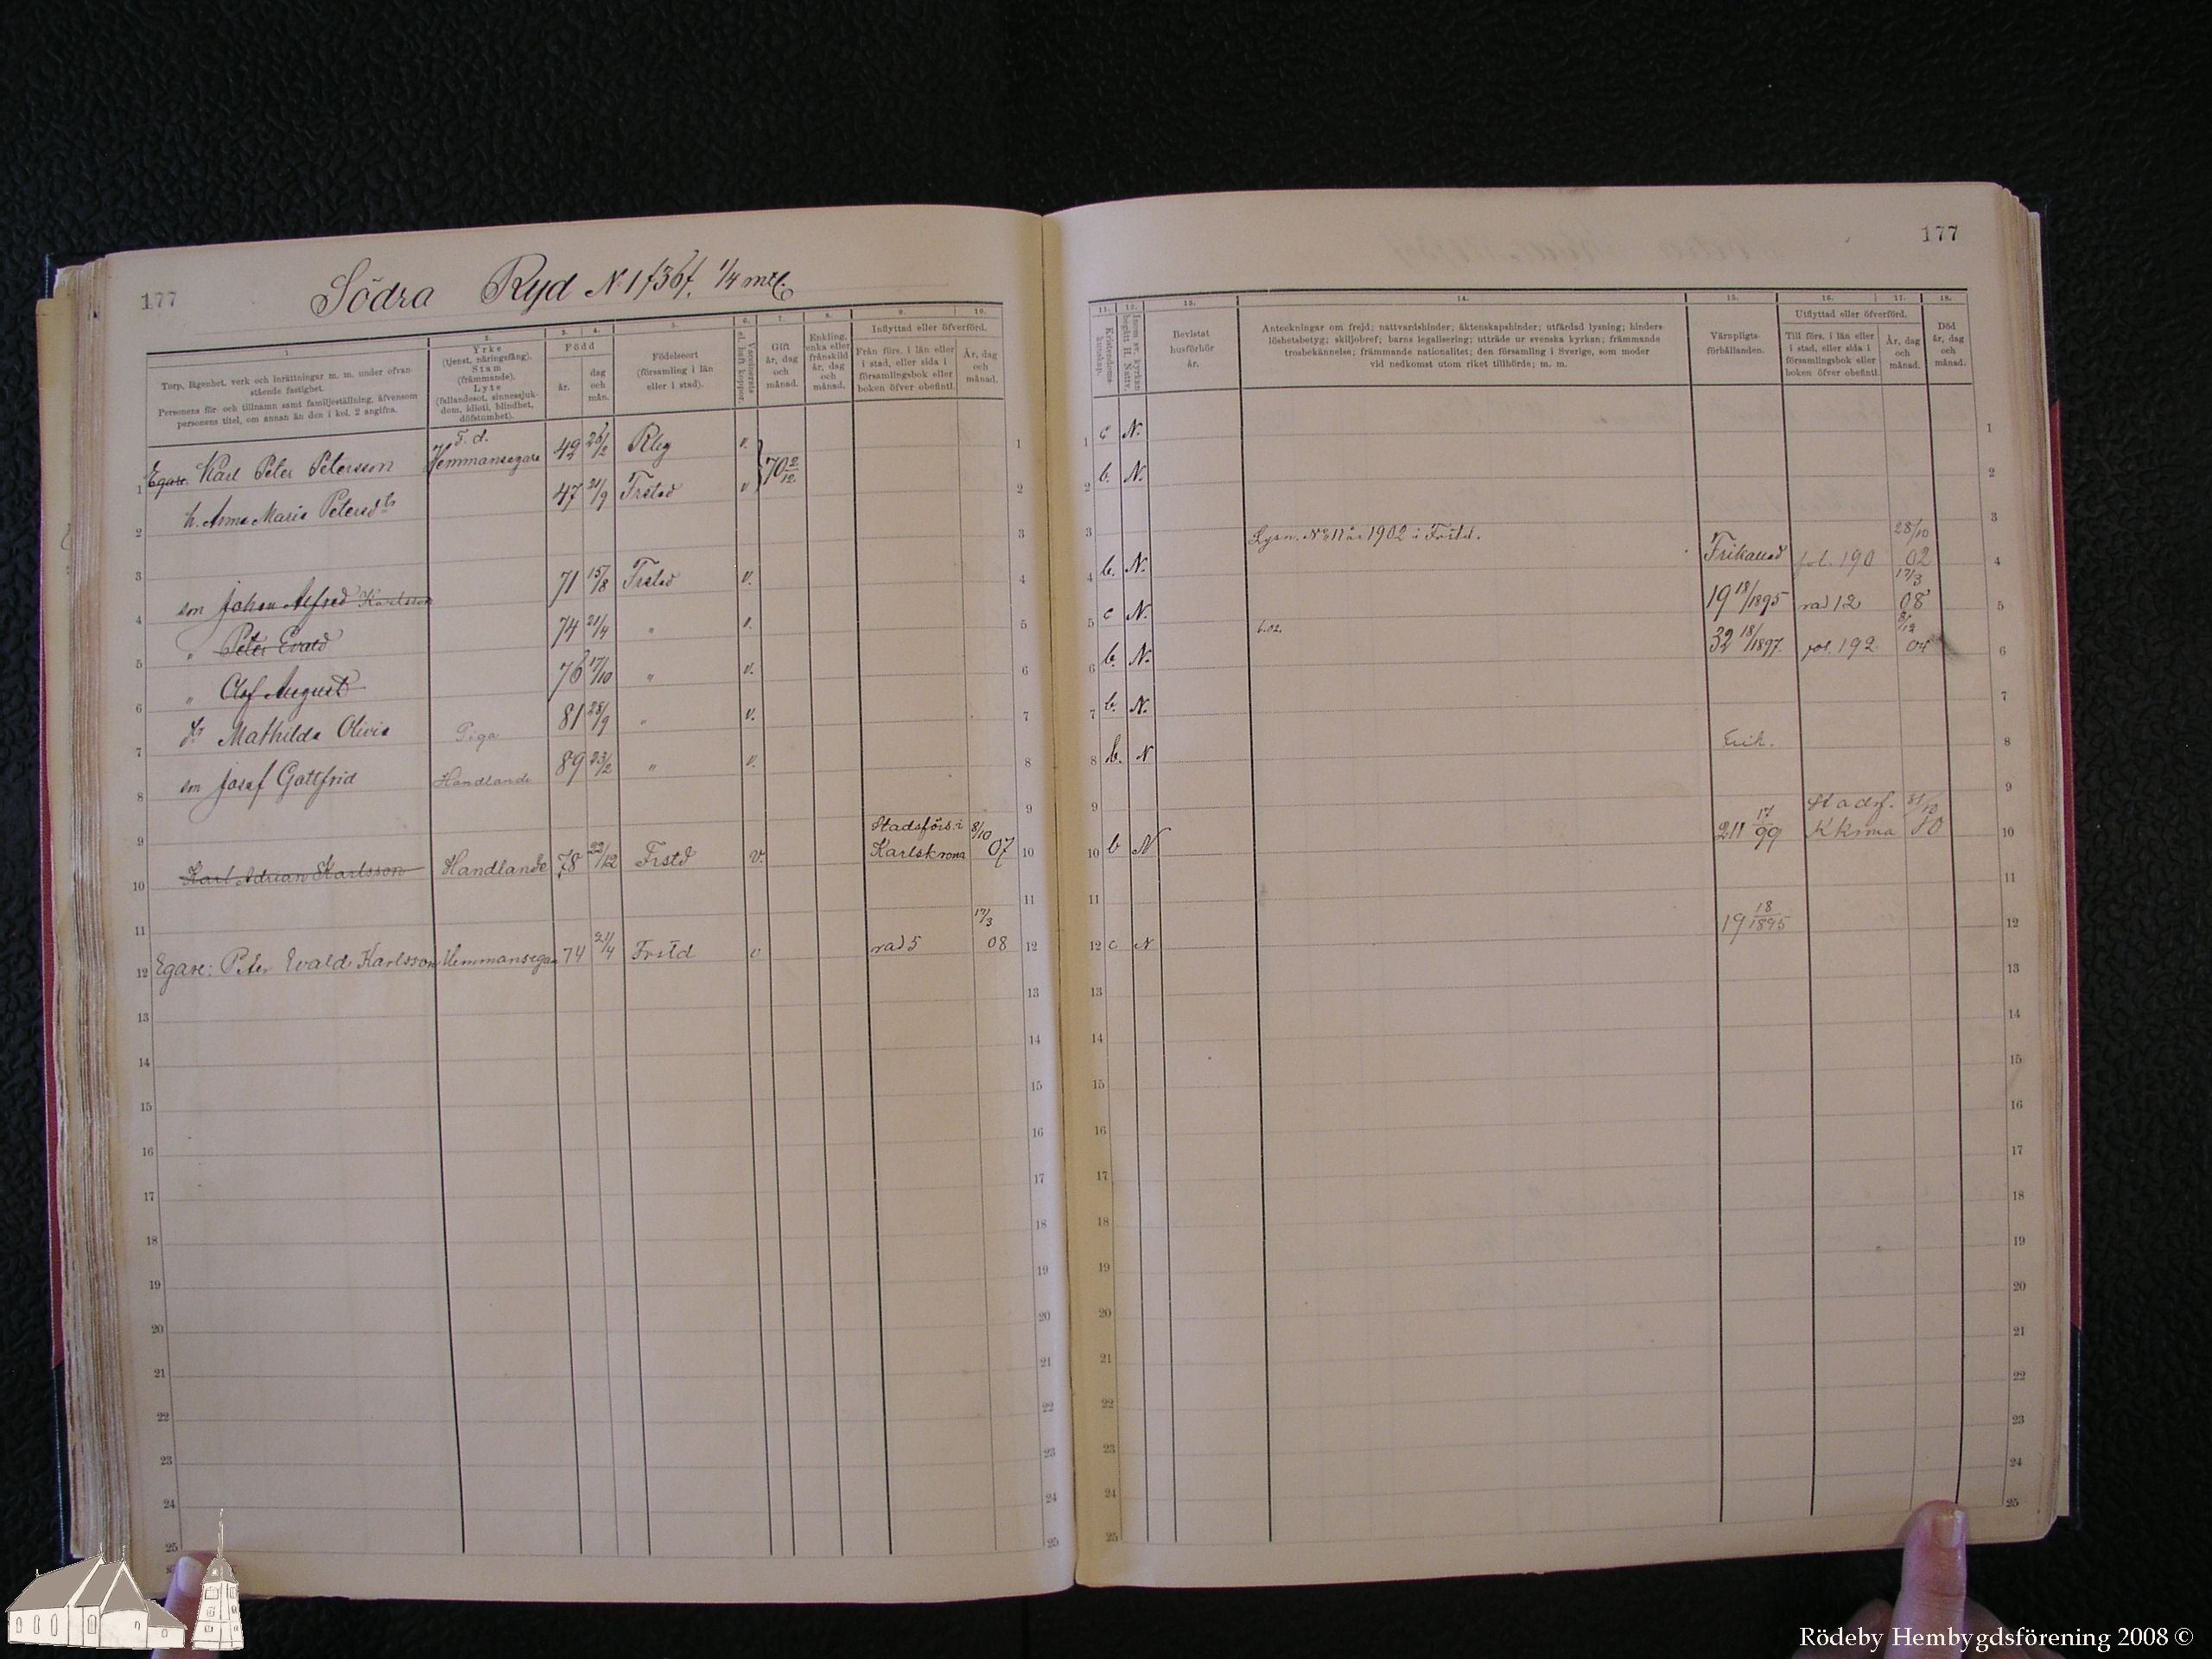 177
Södra Ryd N 1 f36f, 1/4 mtl.
1. 2. 3. 4. 5. 6. 7. 8. 9. 10.
Torp, lägenhet, verk och inrättningar m. m. under ofvan-
stående fastighet.
Personens för- och tillnamn samt familjeställning, äfvensom
personens titel, om annan än den i kol. 2 angifna.
Yrke
(tjenst, näringsfång).
Stam
(främmande).
Lyte
(fallandesot, sinnessjuk-
dom, idioti, blindhet,
döfstumhet).
Född
år.
dag
och
mån.
Födelseort
(församling i län
eller i stad).
Vaccinerats
el. haft koppor.
Gift
år, dag
och
månad.
Enkling,
enka eller
frånskild
år, dag
och
månad.
Inflyttad eller öfverförd.
Från förs. i län eller
i stad, eller sida i
församlingsbok eller
boken öfver obefintl.
År, dag
och
månad.
1 Egare. Karl Peter Petersson F. d. Hemmansegare 42 26/2 Rby v. 70 2/12 1
2 h. Anna Maria Petersdtr 47 21/9 Frstad v 2
3 3
4 son Johan Alfred Karlsson 71 15/8 Frstad v. 4
5 " Peter Evald 74 21/4 " v. 5
6 " Olof August 76 17/10 " v. 6
7 dr Mathilda Olivia Piga 81 28/9 " v. 7
8 son Josef Gottfrid Handlande 89 23/2 " v. 8
9 9
10 Karl Adrian Karlsson Handlande 78 22/12 Frstd v. Stadsförs. i Karlskrona 8/10 07 10
11 11
12 Egare: Peter Evald Karlsson Hemmansegare 74 21/4 Frstd v rad 5 17/3 08 12
13 13
14 14
15 15
16 16
17 17
18 18
19 19
20 20
21 21
22 22
23 23
24 24
25 25
177
11. 12. 13. 14. 15. 16. 17. 18.
Kristendoms-
kunskap.
Inom sv. kyrkan
begått H. Nattv.
Bevistat
husförhör
år.
Anteckningar om frejd; nattvardshinder; äktenskapshinder; utfärdad lysning; hinders-
löshetsbetyg; skiljobref; barns legalisering; utträde ur svenska kyrkan; främmande
trosbekännelse; främmande nationalitet; den församling i Sverige, som moder
vid nedkomst utom riket tillhörde; m. m.
Värnpligts-
förhållanden.
Utflyttad eller öfverförd.
Till förs. i län eller
i stad, eller sida i
församlingsbok eller
boken öfver obefintl.
År, dag
och
månad.
Död
år, dag
och
månad.
1 c N. 1
2 b. N. 2
3 3
4 b. N. Lysn. No 11 år 1902 i Frstd. Frikallad fol. 190 28/10 02 4
5 c N. 19 18/1895 rad 12 17/3 08 5
6 b. N. b.02. 32 18/1897. fol. 192 04 6
7 b. N. 7
8 b. N 8
9 9
10 b N 211 17/99 Stadsf. Kkrona 31/10 10 10
11 11
12 c N 19 18/1895 12
13 13
14 14
15 15
16 16
17 17
18 18
19 19
20 20
21 21
22 22
23 23
24 24
25 25
Rödeby Hembygdsförening 2008 ©